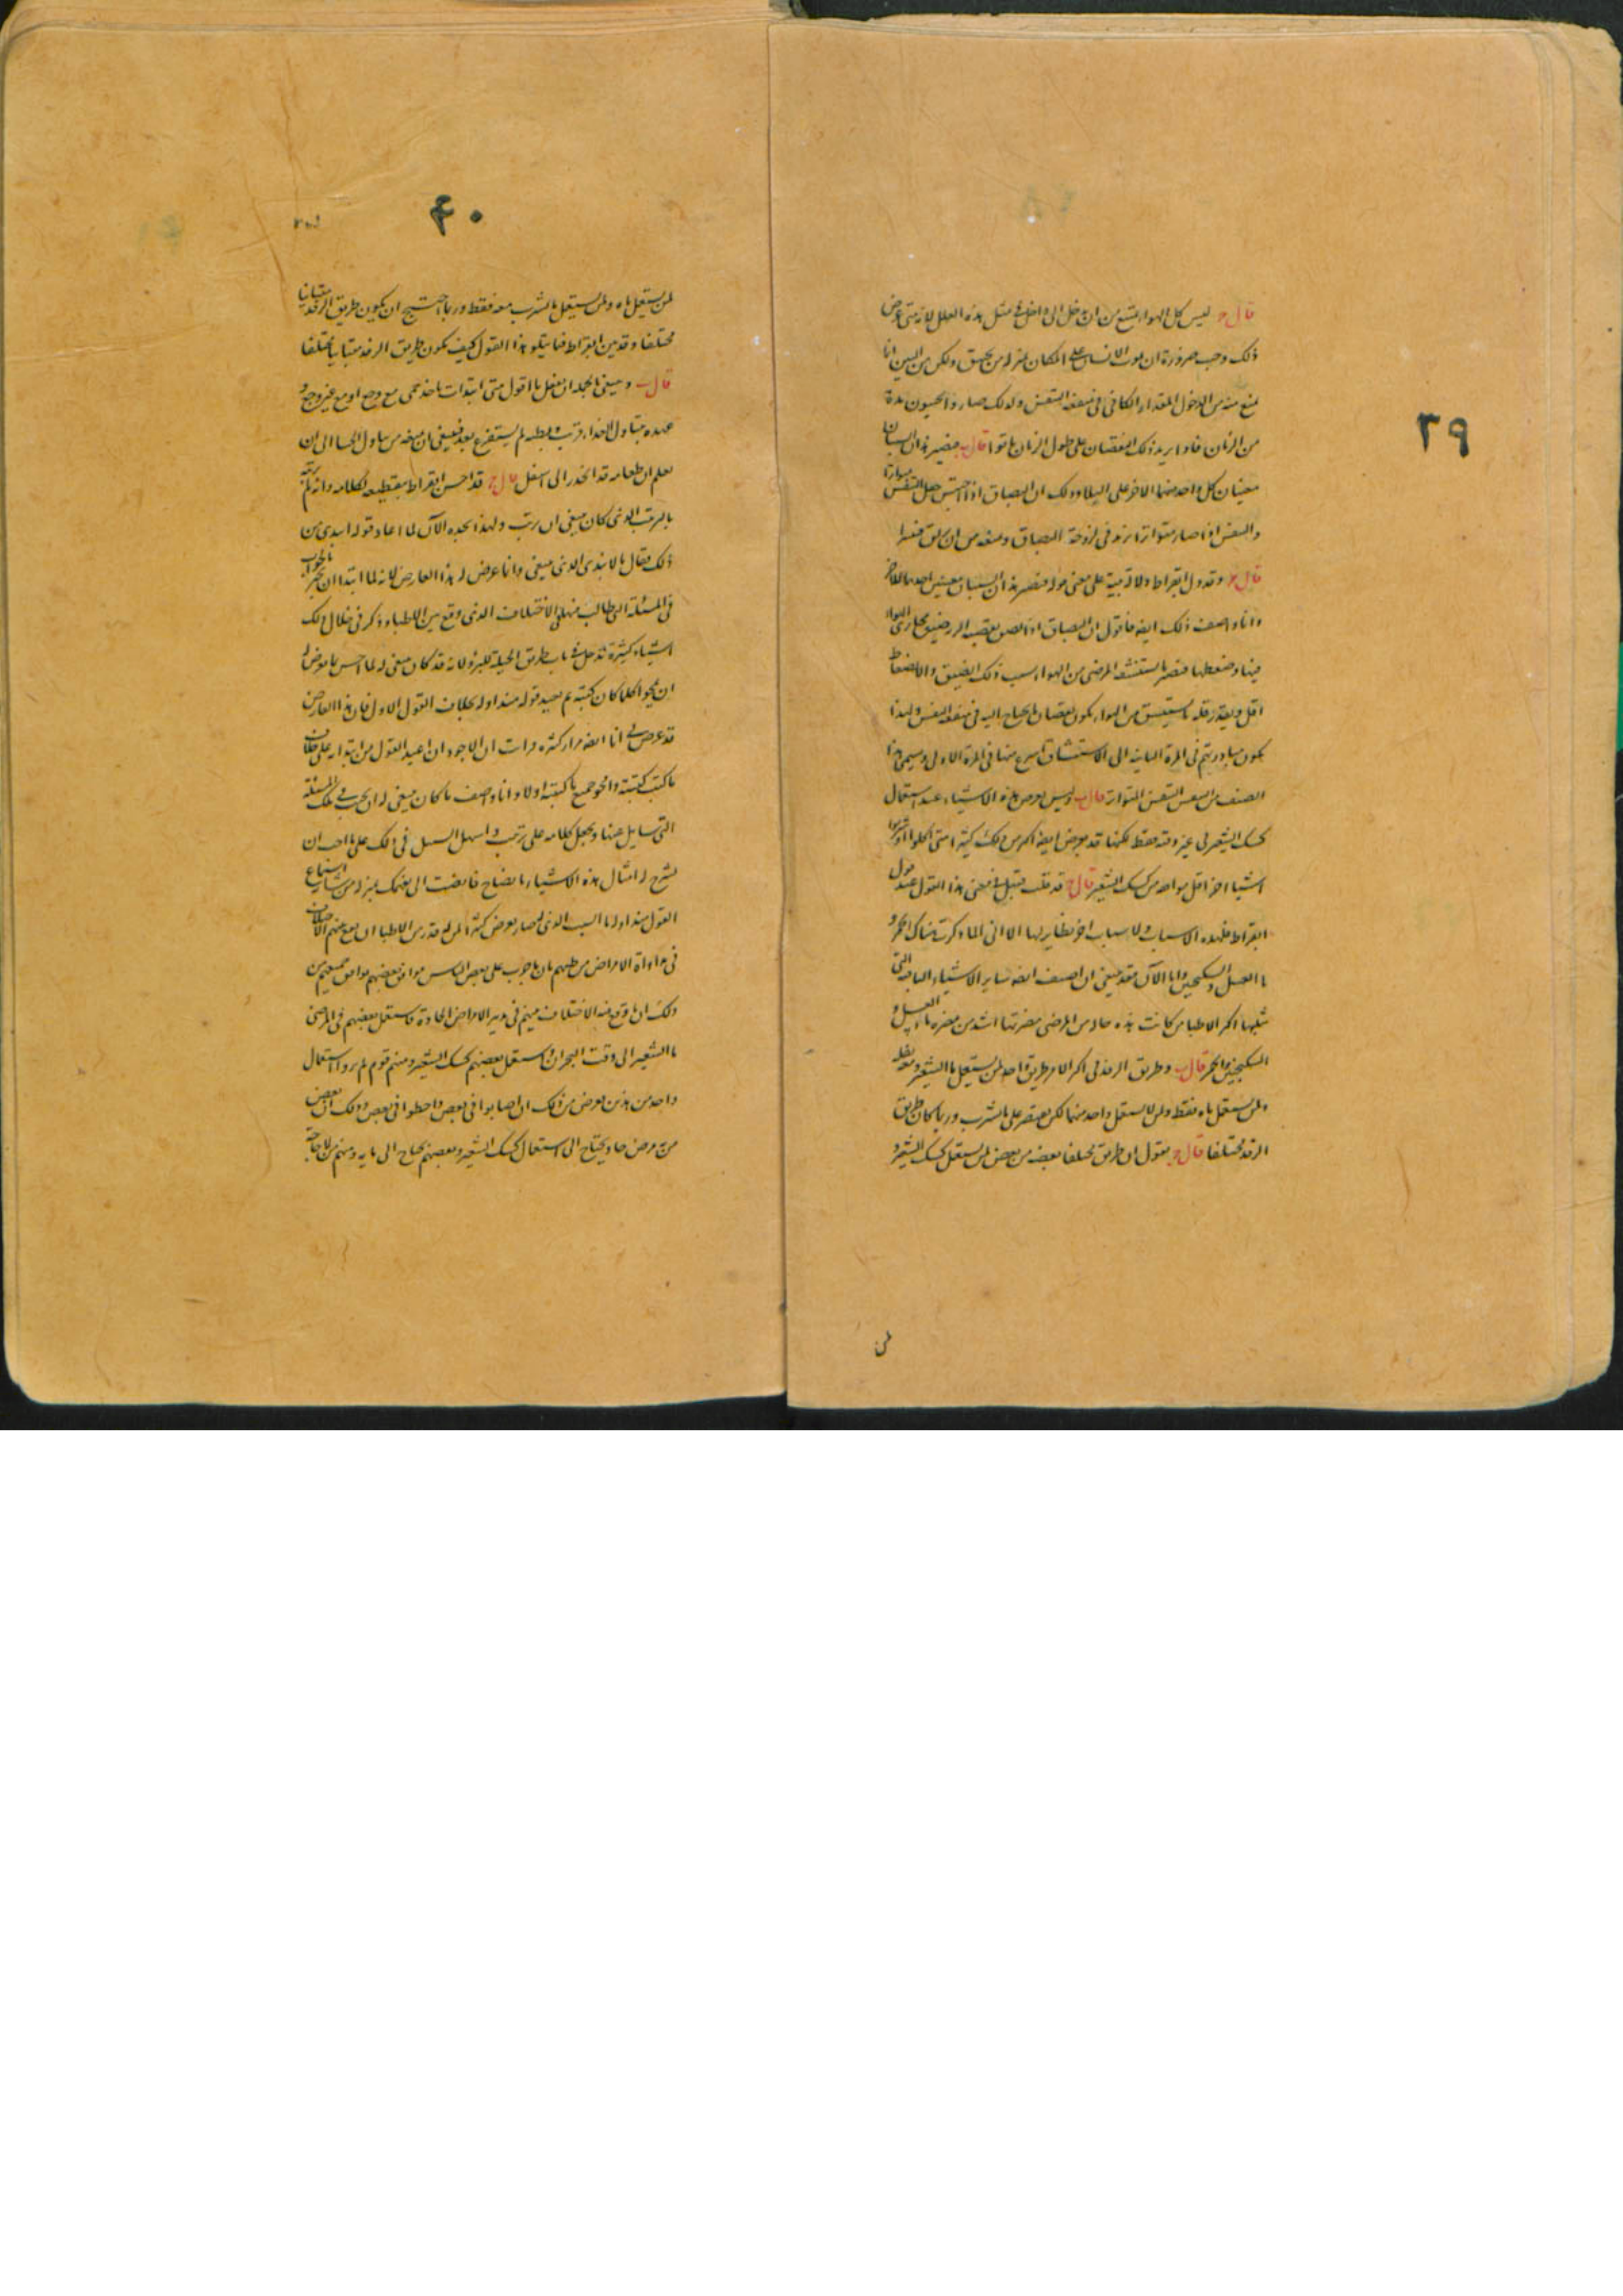 ٣٩
قال ج ليس كل الهواء يمتنع من ان يدخل الى داخل في مثل هذه العلل لانه متى عرض
ذلك وجب ضرورة ان يموت الانسان على المكان بمنزلة من يختنق ولكن من البين انما
يمنع منه من الدخول المقدار الكافي في منفعة التنفس ولذلك صاروا يحيون مدة
من الزمان فاذا تزيد ذلك النقصان على طول الزمان ماتوا قال ب فيصير هذان السببان
معينان كل واحد منهما الاخر على البلاء وذلك ان البصاق اذا احتبس جعل التنفس متواترا
والتنفس اذا صار متواترا زيد في لزوجة البصاق ومنعه من ان
قال ج وقد دل ابقراط دلالة بينة على معنى قوله فيصير هذان السببان معينين احدهما للاخر
وانا واصف ذلك ايضا فاقول ان البصاق اذا لصق بقصبة الرية ضيق مجاري الهواء
فيها وضغطها فيصير ما يستنشقه المرضى من الهواء بسبب ذلك الضيق والانضغاط
اقل وبقدر قلة ما يستنشق من الهواء يكون نقصان ما يحتاج اليه في منفعة التنفس ولهذا
يكون مبادرتهم في المرة الثانية الى الاستنشاق اسرع منها في المرة الاولى ويسمى هذا
الصنف من التنفس التنفس المتواتر قال ب وليس يعرض هذه الاشياء عند استعمال
كشك الشعير في غير وقته فقط لكنها قد يعرض ايضا اكثر من ذلك كثيرا متى اكلوا او شربوا
اشياء اخر اقل موافقة من كشك الشعير قال ج قد قلت قبل في معنى هذا القول عند قول
ابقراط فلهذه الاسباب ولاسباب اخر نظاير لها الا اني انما ذكرت هناك الخمر و
ماء العسل والسكنجبين واما الآن فقد ينبغي ان اضيف ايضا ساير الاشياء الباقية التي
مثلها اكثر الاطباء من كانت هذه حاله من المرضى مضرتها اشد من مضرة ماء العسل و
السكنجبين والخمر قال ب وطريق الرفد في اكثر الامر طريق واحد لمن يستعمل ماء الشعير ومعه ثقله
ولمن يستعمل ماءه فقط ولمن لا يستعمل واحد منهما لكن يقتصر على ما يشرب وربما كان طريق
الرفد مختلفا قال ج يقول ان طريق مختلفا بعضه من بعض لمن يستعمل كشك الشعير و
لمن
٤٠
لمن يستعمل ماءه ولمن يستعمل ما يشرب معه فقط وربما احتيج ان يكون طريق الرفد متباينا
مختلفا وقد بين ابقراط فيما يتلو هذا القول كيف يكون طريق الرفد متباينا مختلفا
قال ب وينبغي بالجملة ان تفعل ما اقول متى ابتدات تاخذ حمى مع وجع او مع غير وجع و
عهده بتناول الغذاء قريب وبطنه لم يستفرغ بعد فينبغي ان تمنعه من تناول الحساء الى ان
تعلم ان طعامه قد انحدر الى اسفل قال ج قد احسن ابقراط بتقطيعه لكلامه وانه لم يرتبه
بالترتيب الذي كان ينبغي ان يرتب ولهذا نجده الآن لما اعاد قوله ابتدى من
ذلك فقال بالابتداء الذي ينبغي وانما عرض له هذا العارض لانه لما ابتدا ان يخبر بالجواب
في المسئلة التي طالب منها في الاختلاف الذي وقع بين الاطباء ذكر في خلال ذلك
اشياء كثيرة تدخل في باب طريق الحيلة للبرؤ لانه قد كان ينبغي له لما احس بما عرض له
ان يمحوا كلما كان كتبه ثم يعيد قوله منذ اوله بخلاف القول الاول فان هذا العارض
قد عرض لي انا ايضا مرارا كثيرة ورايت ان الاجود ان اعيد القول من ابتدايه على خلاف
ما كتب كتبته وامحو جميع ما كتبته اولا وانا واصف ما كان ينبغي له ان يجيب في تلك المسئلة
التي سايل عنها ويجعل كلامه على ترتيب واسهل السبل في ذلك على ما احب ان
يشرح له امثال هذه الاشياء بايضاح فانصت الى بفهمك بمنزلة من يشاء استماع
القول منذ اوله ما السبب الذي له صار يعرض كثيرا لمن له قدر من الاطباء ان يقع بينهم الاختلاف
في مداواة الامراض من ظنهم بان ما جرب على بعض الناس موافق بعضهم موافق جميعهم من
ذلك ان ما وقع منه الاختلاف بينهم في تدبير الامراض الحادة فاستعمل بعضهم في المرضى
ماء الشعير الى وقت البحران واستعمل بعضهم كشك الشعير ومنهم قوم لم يروا استعمال
واحد من هذين يعرض من ذلك ان اصابوا في بعض واخطوا في بعض وذلك ان بعض
من مرض حاد يحتاج الى استعمال كشك الشعير وبعضهم يحتاج الى مايه ومنهم من لا حاجة